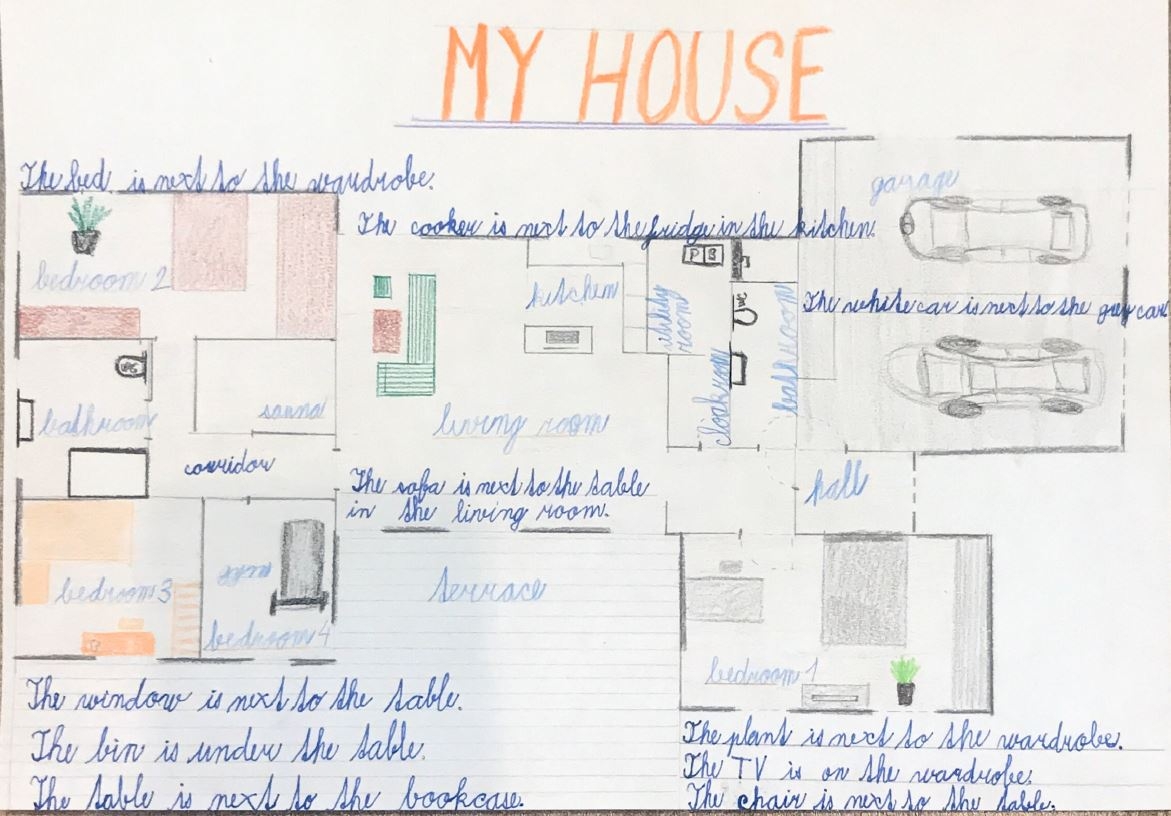 MY HOUSE
The bed is next to the wardrobe.
garage
The cooker is next to the fridge in the kitchen.
bedroom 2
kitchen
utility room
P B
WC
bathroom
The white car is next to the grey car.
cloakroom
bathroom
sauna
living room
corridor
The sofa is next to the table
in the living room.
hall
bedroom 3
bedroom 4
terrace
bedroom 1
The window is next to the table.
The bin is under the table.
The table is next to the bookcase.
The plant is next to the wardrobe.
The TV is on the wardrobe.
The chair is next to the table.